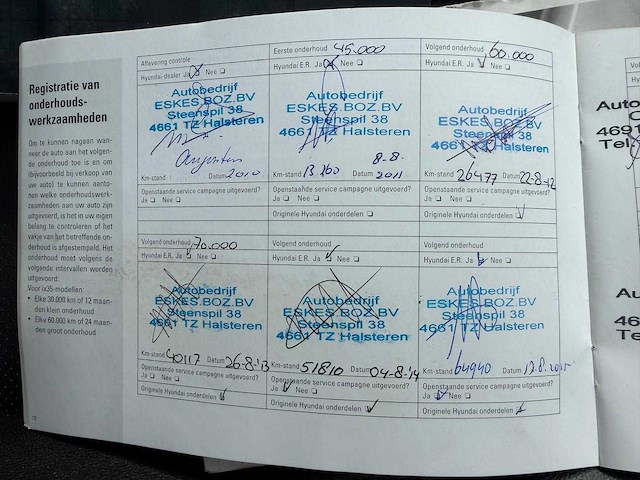 Registratie van
onderhouds-
werkzaamheden
Om te kunnen nagaan wan-
neer de auto aan het volgen-
de onderhoud toe is en om
(bijvoorbeeld bij verkoop van
uw auto) te kunnen aanto-
nen welke onderhoudswerk-
zaamheden aan uw auto zijn
uitgevoerd, is het in uw eigen
belang te controleren of het
vakje van het betreffende on-
derhoud is afgestempeld. Het
onderhoud moet volgens de
volgende intervallen worden
uitgevoerd:
Voor ix35-modellen:
• Elke 30.000 km of 12 maan-
den klein onderhoud
• Elke 60.000 km of 24 maan-
den groot onderhoud
Aflevering controle
Hyundai-dealer Ja Nee
Autobedrijf
ESKES BOZ.BV
Steenspil 38
4661 TZ Halsteren
Augustus
Km-stand Datum 2010
Openstaande service campagne uitgevoerd?
Ja Nee
Eerste onderhoud 45.000
Hyundai E.R. Ja Nee
Autobedrijf
ESKES BOZ.BV
Steenspil 38
4661 TZ Halsteren
8-8-
Km-stand 13.160 Datum 2011
Openstaande service campagne uitgevoerd?
Ja Nee
Originele Hyundai onderdelen
Volgend onderhoud 60.000
Hyundai E.R. Ja Nee
Autobedrijf
ESKES BOZ.BV
Steenspil 38
4661 TZ Halsteren
Km-stand 26477 Datum 22-8-12
Openstaande service campagne uitgevoerd?
Ja Nee
Originele Hyundai onderdelen
Volgend onderhoud 70.000
Hyundai E.R. Ja Nee
Autobedrijf
ESKES BOZ.BV
Steenspil 38
4661 TZ Halsteren
Km-stand 40117 Datum 26-8-'13
Openstaande service campagne uitgevoerd?
Ja Nee
Originele Hyundai onderdelen
Volgend onderhoud
Hyundai E.R. Ja Nee
Autobedrijf
ESKES BOZ.BV
Steenspil 38
4661 TZ Halsteren
Km-stand 51810 Datum 04-8-'14
Openstaande service campagne uitgevoerd?
Ja Nee
Originele Hyundai onderdelen
Volgend onderhoud
Hyundai E.R. Ja Nee
Autobedrijf
ESKES BOZ.BV
Steenspil 38
4661 TZ Halsteren
Km-stand 64940 Datum
Openstaande service campagne uitgevoerd?
Ja Nee
Originele Hyundai onderdelen